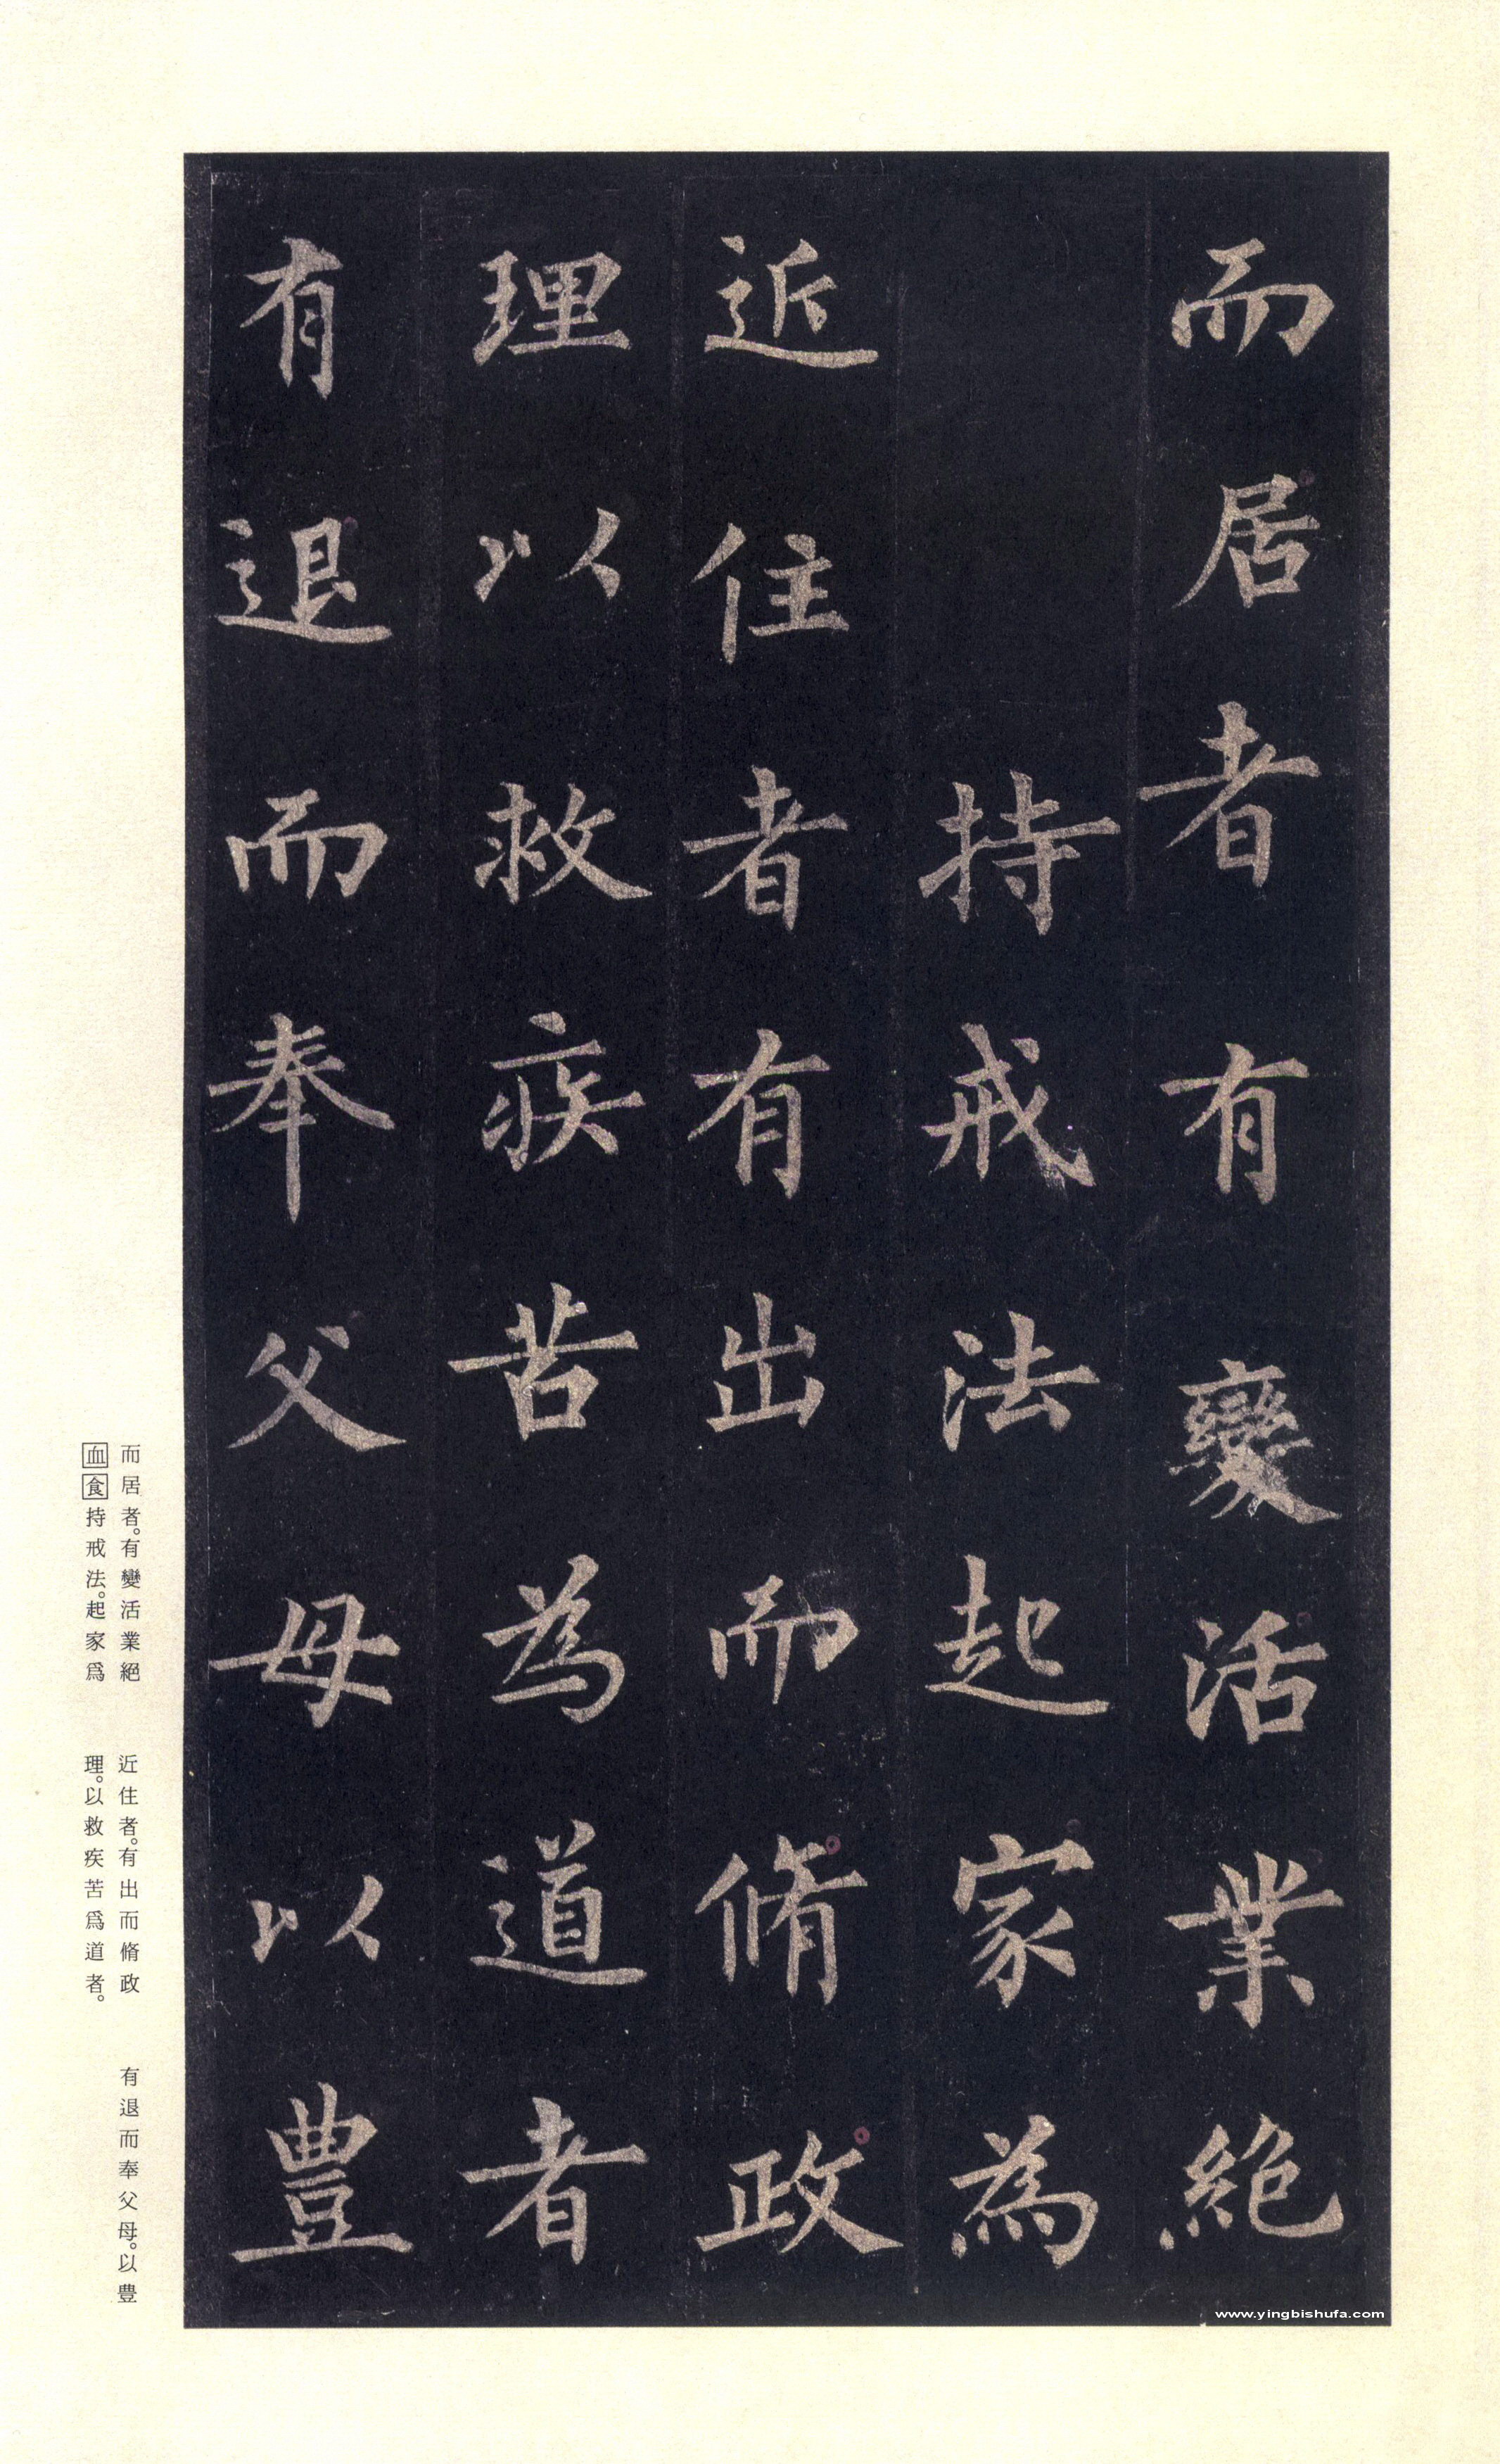 而居者有變活業絕
持戒法起家為
近住者有出而脩政
理以救疾苦為道者
有退而奉父母以豊
而居者。有變活業絕
血食持戒法。起家爲
近住者。有出而脩政
理。以救疾苦爲道者。
有退而奉父母。以豊
www.yingbishufa.com